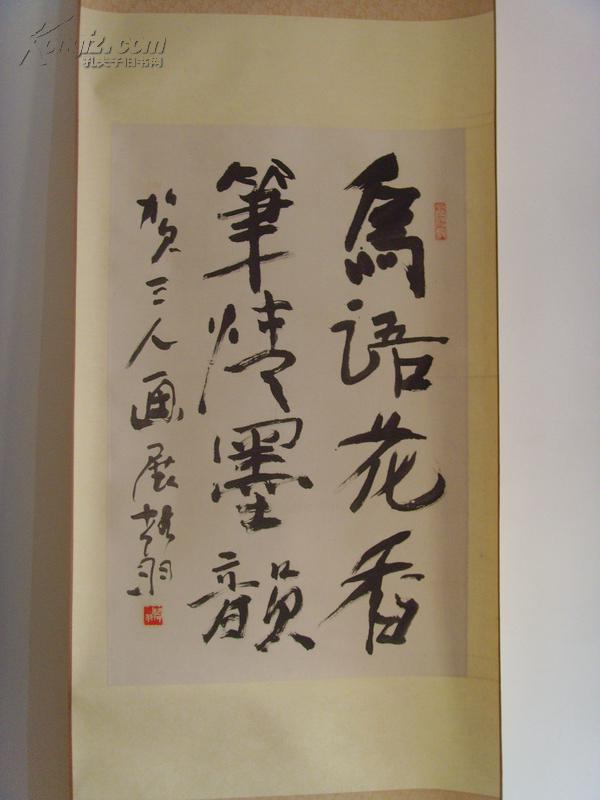 Kongfz.com
孔夫子旧书网
鳥語花香
筆情墨韻
贺三人画展